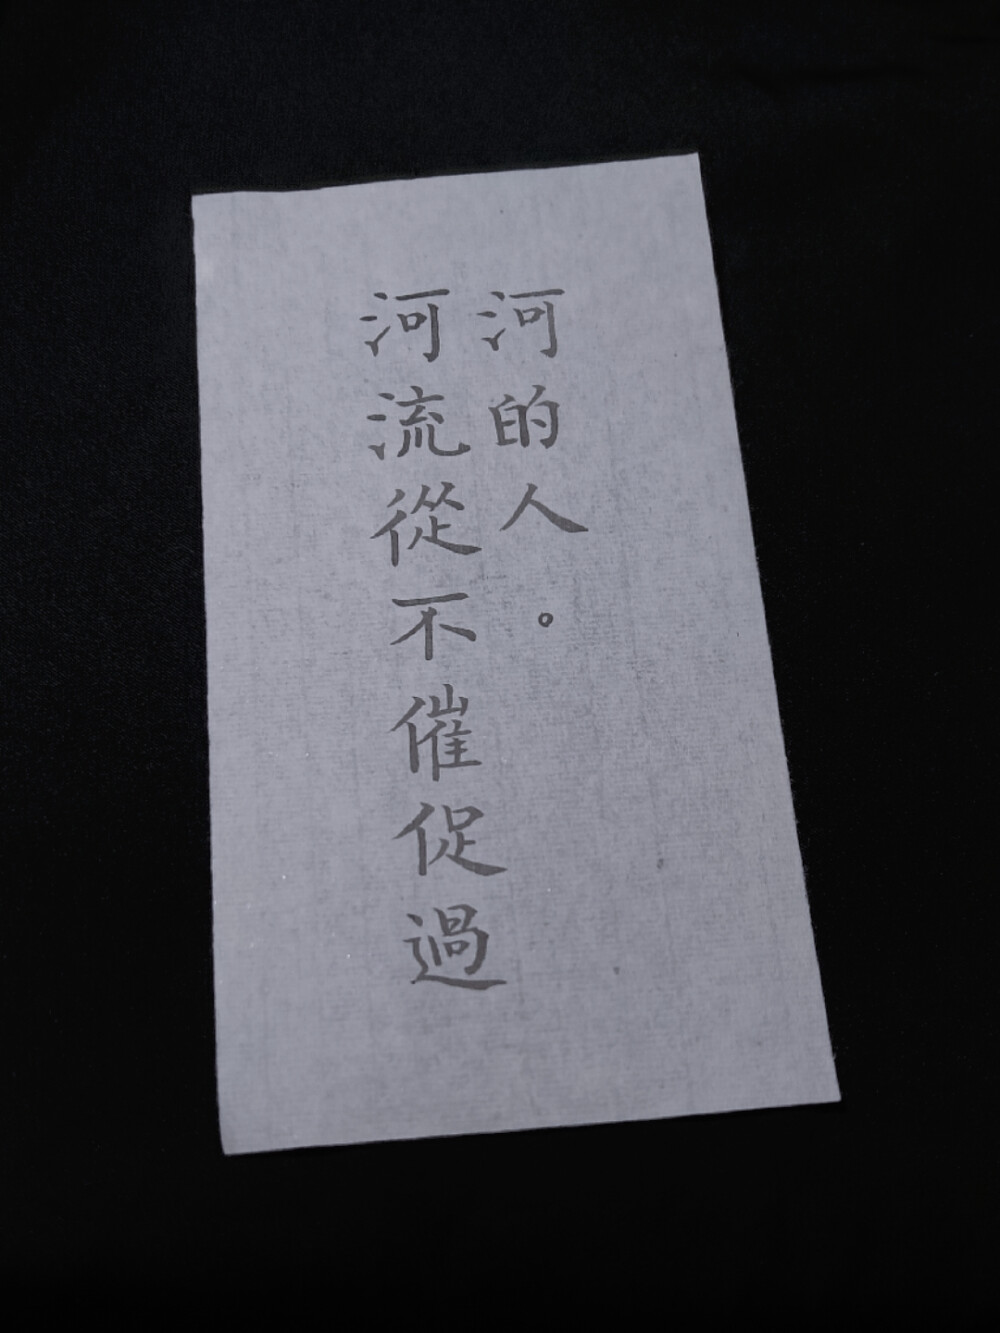 河流從不催促過
河的人。